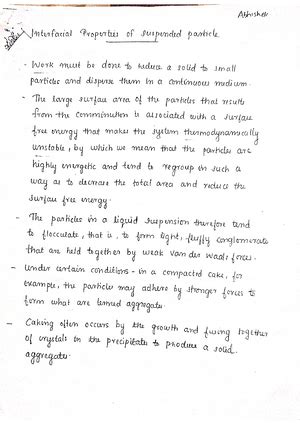 Abhishek
Interfacial Properties of suspended particle.
- Work must be done to reduce a solid to small
particles and disperse them in a continuous medium.
- The large surface area of the particles that results
from the comminution is associated with a surface
free energy that makes the system thermodynamically
unstable, by which we mean that the particles are
highly energetic and tend to regroup in such a
way as to decrease the total area and reduce the
surface free energy.
- The particles in a liquid suspension therefore tend
to flocculate, that is, to form light, fluffy conglomerate
that are held together by weak van der Waals forces.
- Under certain conditions - in a compacted cake, for
example, the particles may adhere by stronger forces to
form what are termed aggregates.
- Caking often occurs by the growth and fusing together
of crystals in the precipitates to produce a solid
aggregates.